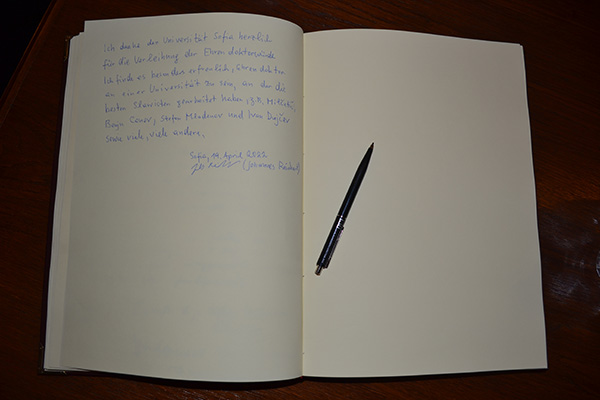 Ich danke der Universität Sofia herzlich
für die Verleihung der Ehrendoktorwürde
Ich finde es besonders erfreulich, Ehrendoktor
an einer Universität zu sein, an der die
besten Slavisten gearbeitet haben, z.B. Miletič,
Benju Conev, Stefan Mladenov und Ivan Dujčev
sowie viele, viele andere.
Sofia, April 2022
(Johannes